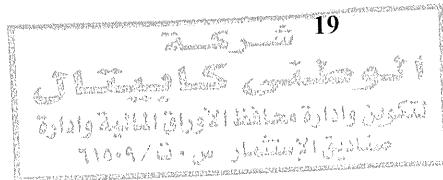 19
شركة
الوطني كابيتال
لتكوين وادارة محافظ الأوراق المالية وادارة
صناديق الإستثمار س.ت/٦١٥٠٩